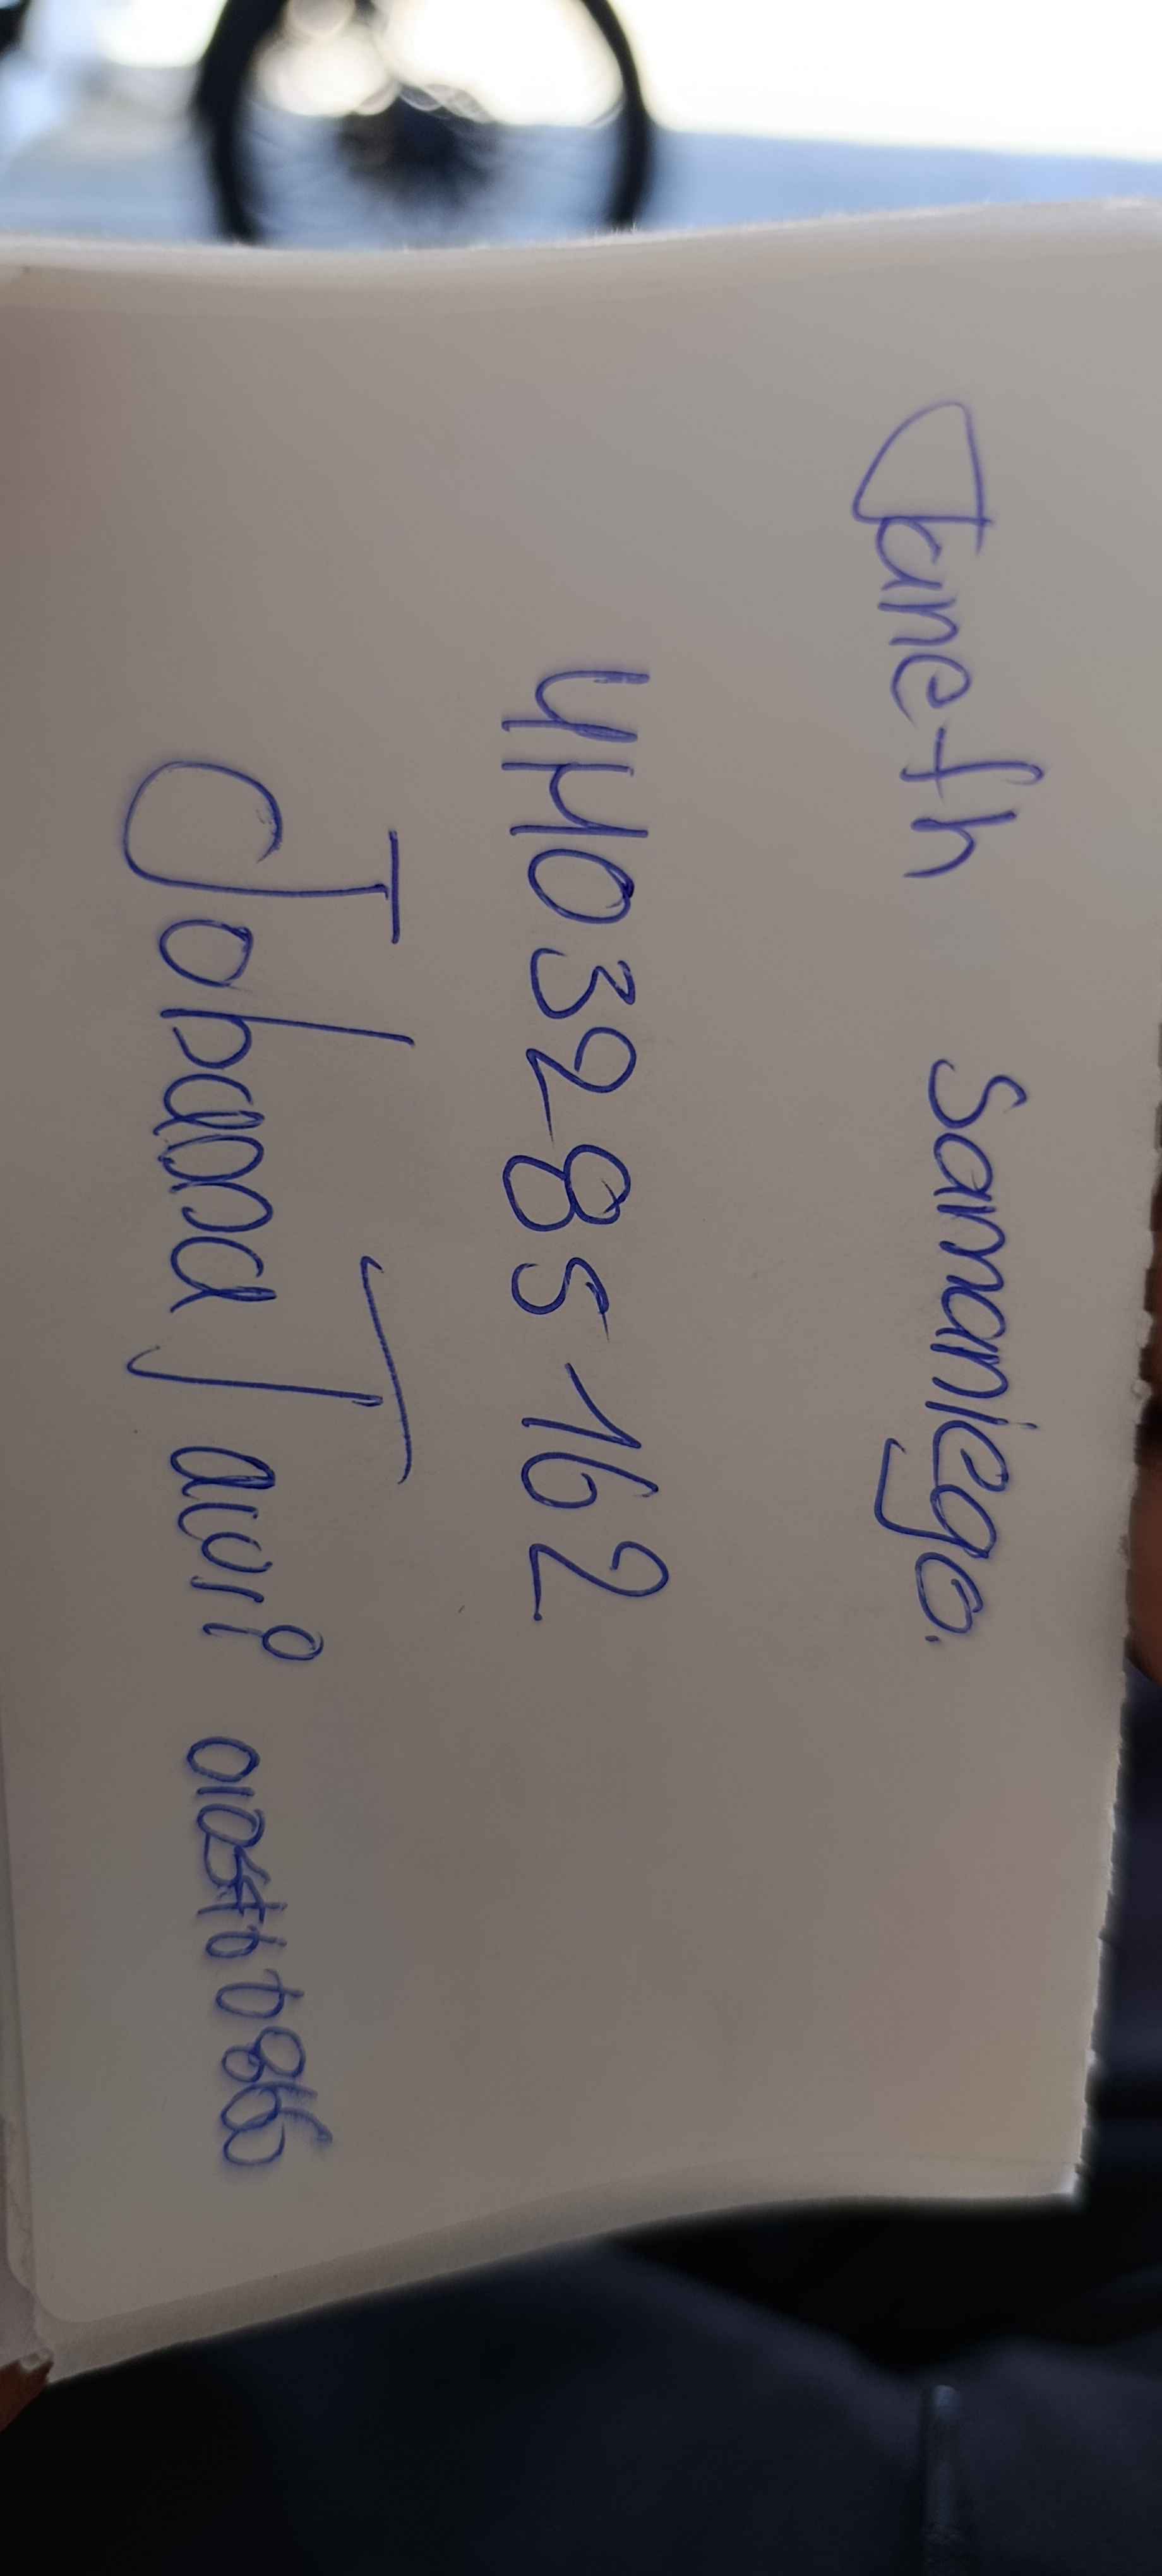 Janeth Samaniego.
4403285162
Johana Tauri 0105466866